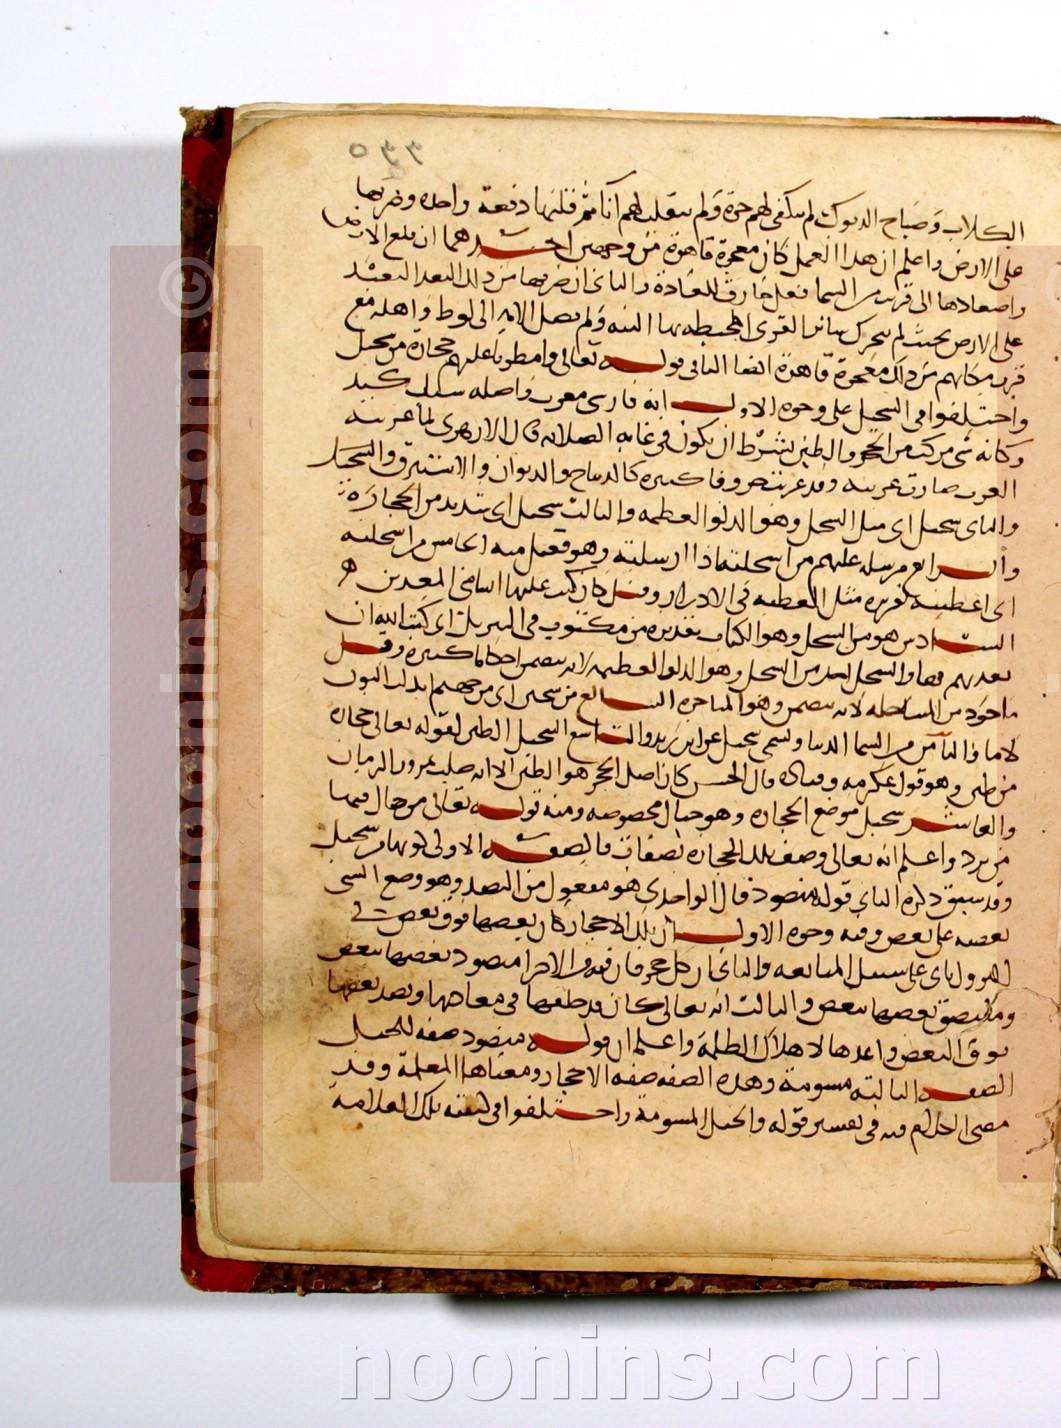 ٥٣٣
الكلاب وصياح الديوك لم ينكفئ لهم جرة ولم ينقلب لهم اناء ثم قلبها دفعة واحدة وضربها
على الارض واعلم ان هذا العمل كان معجزة قاهرة من وجهين احدهما ان قلع الارض
واصعادها الى قريب من السما فعل خارق للعادة والثاني ان ضربها من ذلك البعد البعيد
على الارض بحيث لم يتحرك سائر القرى المحيطة بها البتة ولم تصل الافة الى لوط واهله مع
قرب مكانهم من ذلك معجزة قاهرة ايضا الثاني قوله تعالى وامطرنا عليهم حجارة من سجيل
واختلفوا في السجيل على وجوه الاول انه فارسي معرب واصله سنك كيل
وكانه شي مركب من الحجر والطين بشرط ان يكون في غاية الصلابة قال الازهري لما عربته
العرب صارت عربية وقد عربت حروفا كثيرة كالديباج والديوان والاستبرق والسجيل
والثاني سجيل اي مثل السجل وهو الدلو العظيمة والثالث سجيل اي شديد من الحجارة
والرابع مرسلة عليهم من اسجلته اذا ارسلته وهو فعيل منه الخامس من اسجلته
اي اعطيته تقديره مثل العطية في الادرار وقيل كان كتب عليها اسامي المعذبين
السادس هو من السجل وهو الكتاب تقديره من مكتوب في السجيل اي كتب الله ان
يعذبهم بها والسجيل اخذ من السجل وهو الدلو العظيمة لانه يتضمن احكاما كثيرة وقيل
ماخوذ من المساجلة وهو المفاخرة السابع من سجين اي من جهنم ابدلت النون
لاما والثامن من السما الدنيا وتسمى سجيل عن ابن زيد والتاسع السجيل الطين لقوله تعالى حجارة
من طين وهو قول عكرمة وقتادة قال الحسن كان اصل الحجر هو الطين الا انه صلب بمرور الزمان
والعاشر سجيل موضع الحجارة وهو جبال مخصوصة ومنه قوله تعالى من جبال فيها
من برد واعلم انه تعالى وصف تلك الحجارة بصفات فالصفة الاولى كونها من سجيل
وقد سبق ذكره الثاني قوله منضود قال الواحدي هو مفعول من النضد وهو وضع الشي
بعضه على بعض وفيه وجوه الاول ان تلك الاحجار كان بعضها فوق بعض في
النزول اتى على سبيل المتابعة والثاني ان كل حجر فان فيه من الاجزا منضود بعضها ببعض
وملتصق بعضها ببعض والثالث انه تعالى كان قد خلقها في معادنها ونضد بعضها
فوق البعض واعدها لاهلاك الظلمة واعلم ان قوله منضود صفة للسجيل
الصفة الثالثة مسومة وهذه الصفة صفة الاحجار ومعناها المعلمة وقد
مضى الكلام فيه في تفسير قوله والخيل المسومة واختلفوا في كيفية تلك العلامة
www.noonins.com
noonins.com